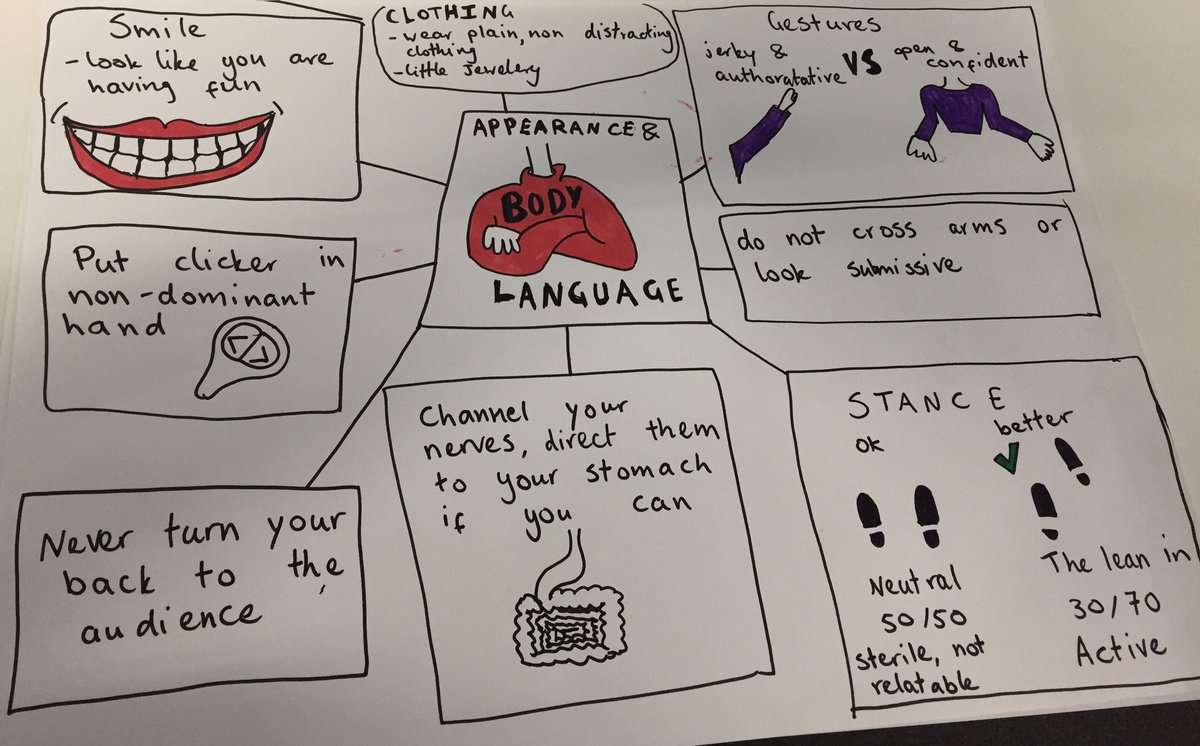 Smile
- look like you are
having fun
CLOTHING
- wear plain, non distracting
clothing
- little jewelery
Gestures
jerky &
authoratative
VS
open &
confident
APPEARANCE &
BODY
LANGUAGE
Put clicker in
non-dominant
hand
do not cross arms or
look submissive
Never turn your
back to the
audience
Channel your
nerves, direct them
to your stomach
if you can
STANCE
ok
better
Neutral
50/50
sterile, not
relatable
The lean in
30/70
Active